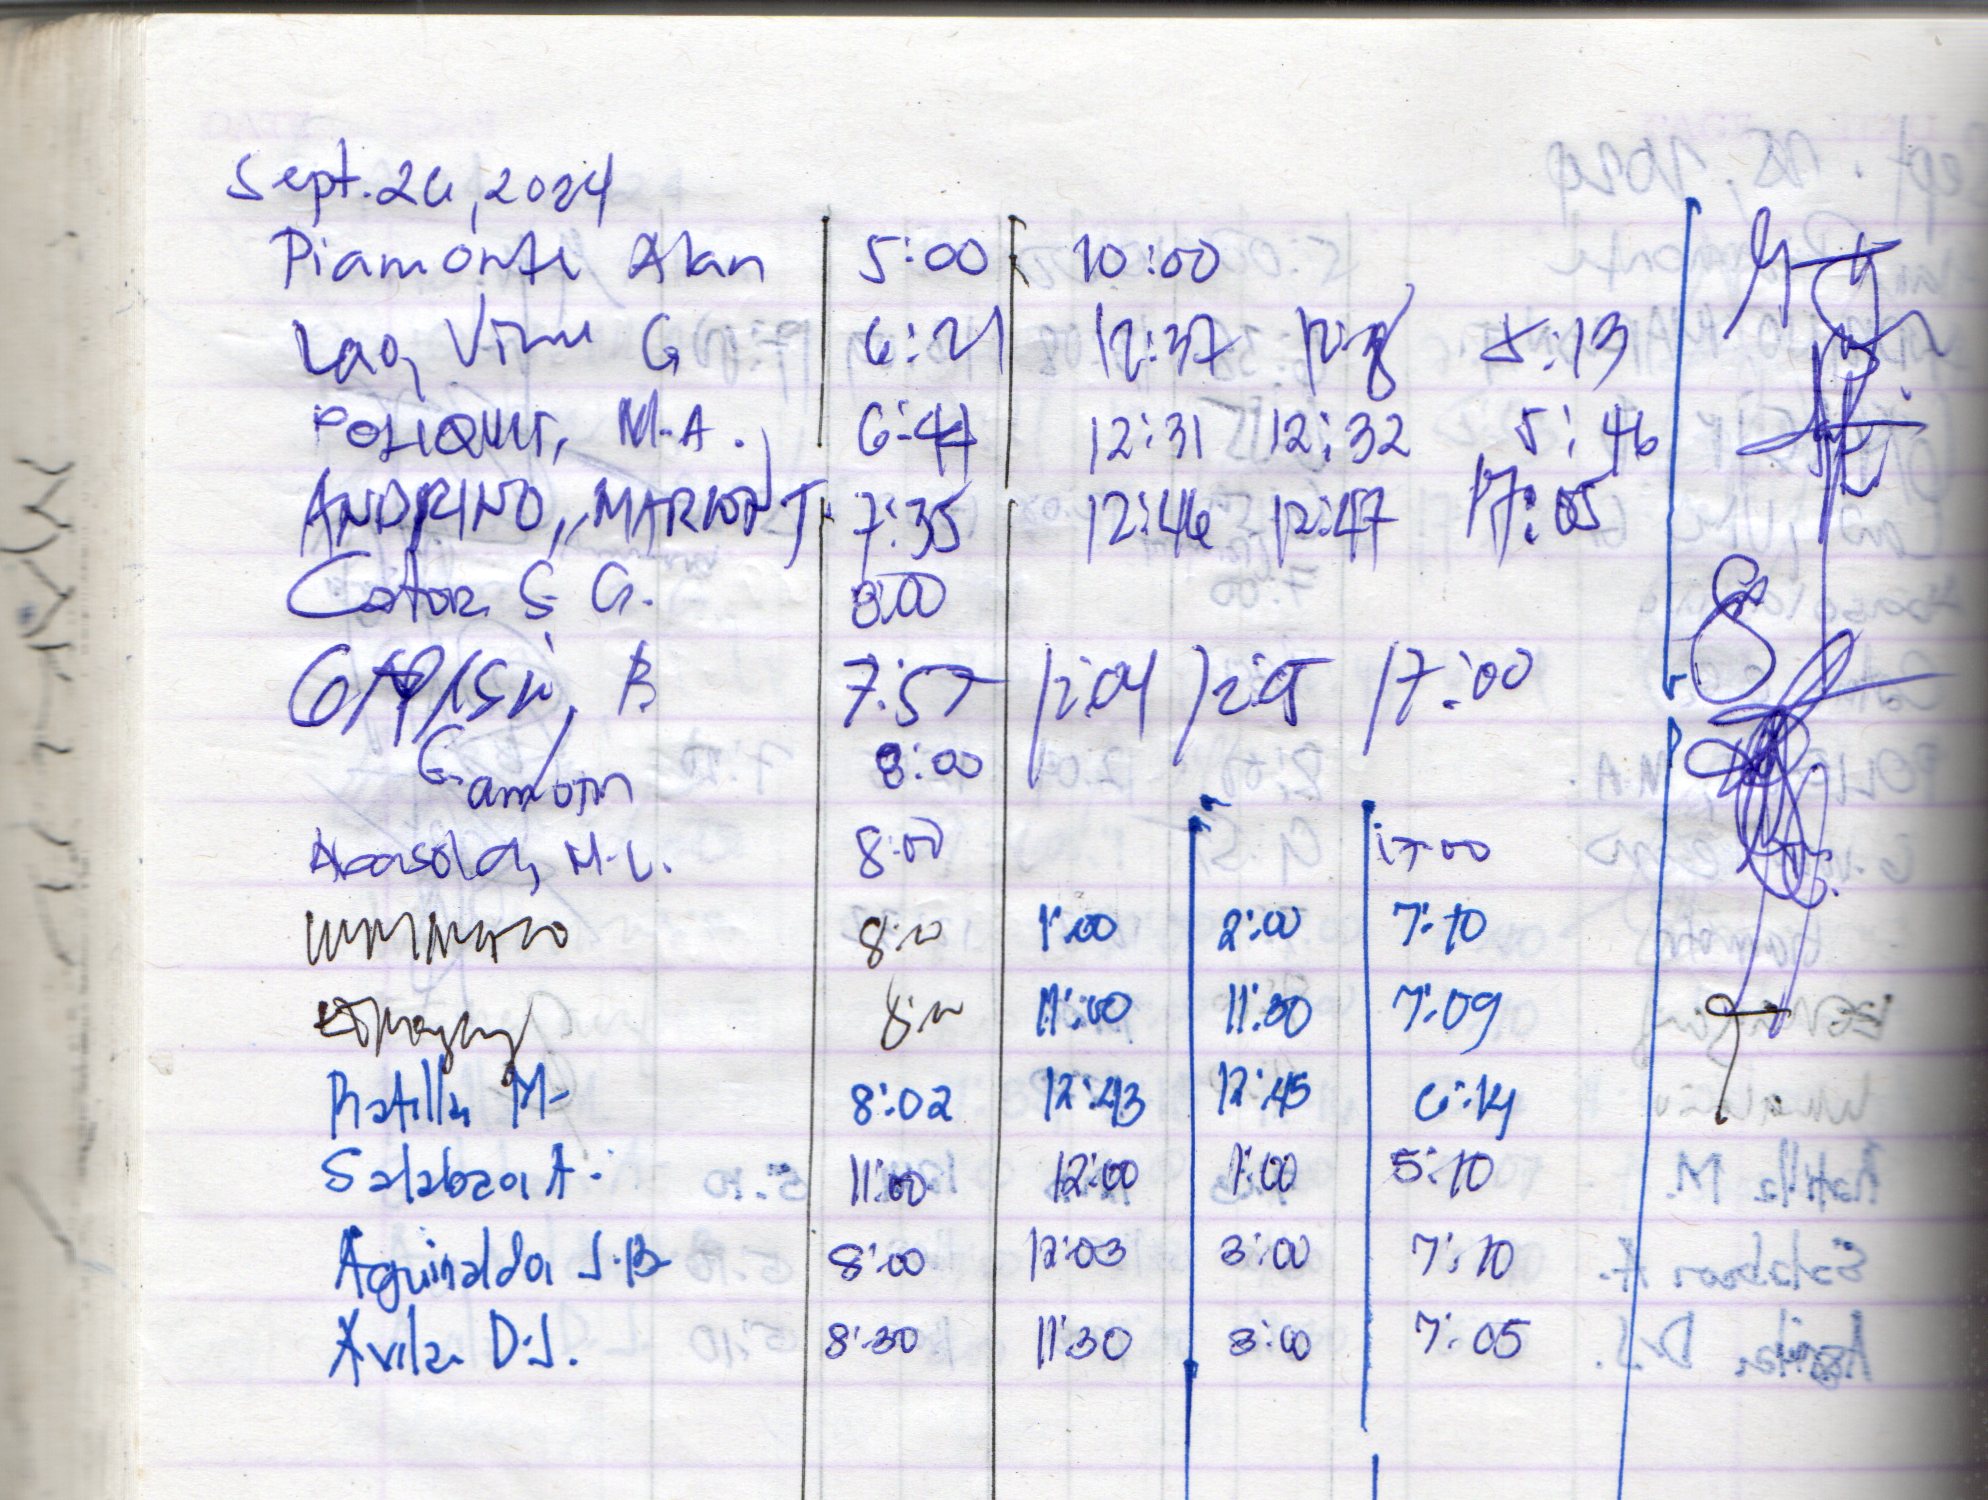 Sept. 26, 2024
Piamonte Alan 5:00 10:00
Lao, Vinu G 6:21 12:37 5:13
POLIQUIT, M-A. 6:44 12:31 12:32 5:46
ANDRINO, MARION J 7:35 12:46 12:47 17:05
Cator S. G. 8:00
B 7:57 12:04 12:05 17:00
Gamotn 8:00
M-L. 8:00 17:00
8:00 1:00 2:00 7:10
8:00 11:00 11:30 7:09
Ratilla M- 8:02 12:43 12:45 6:14
Salabao A. 11:00 12:00 1:00 5:10
Aguinaldo J.B 8:00 12:03 3:00 7:10
Avila D.J. 8:30 11:30 3:00 7:05